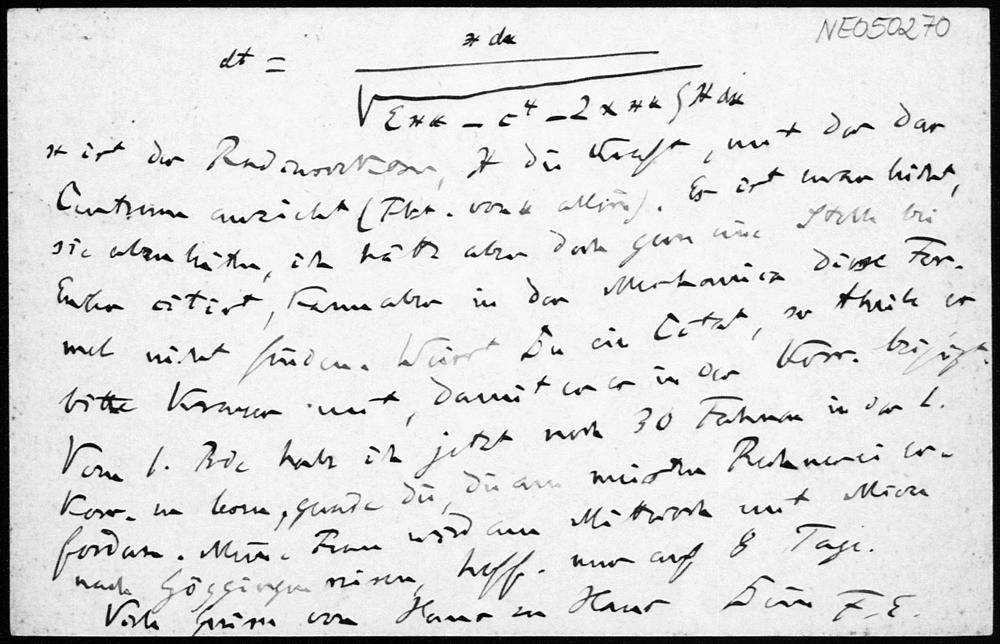 NEO50270
dt = x dx / √(Exx − c⁴ − 2xxx ∫X dx)
x ist der Radiusvektor, X die Kraft, mit der das
Centrum anzieht (Fkt. von x allein). Es ist zwar leicht,
sie abzuleiten, ich hätte aber doch gern eine Stelle bei
Euler citirt, kann aber in der Mechanica diese For-
mel nicht finden. Weisst Du ein Citat, so theile es
bitte Krazer mit, damit er es in der Korr. beifügt.
Vom 1. Bde habe ich jetzt noch 30 Fahnen in der 1.
Korr. zu lesen, gerade die, die am meisten Rechnerei er-
fordern. Meine Frau wird am Mittwoch mit
nach Göggingen reisen, hoff. nur auf 8 Tage.
Viele Grüsse von Haus zu Haus Dein F. E.